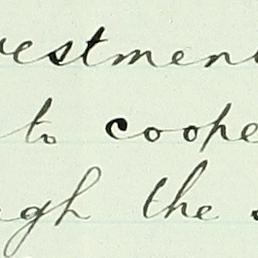 vestment
to coope
ugh the